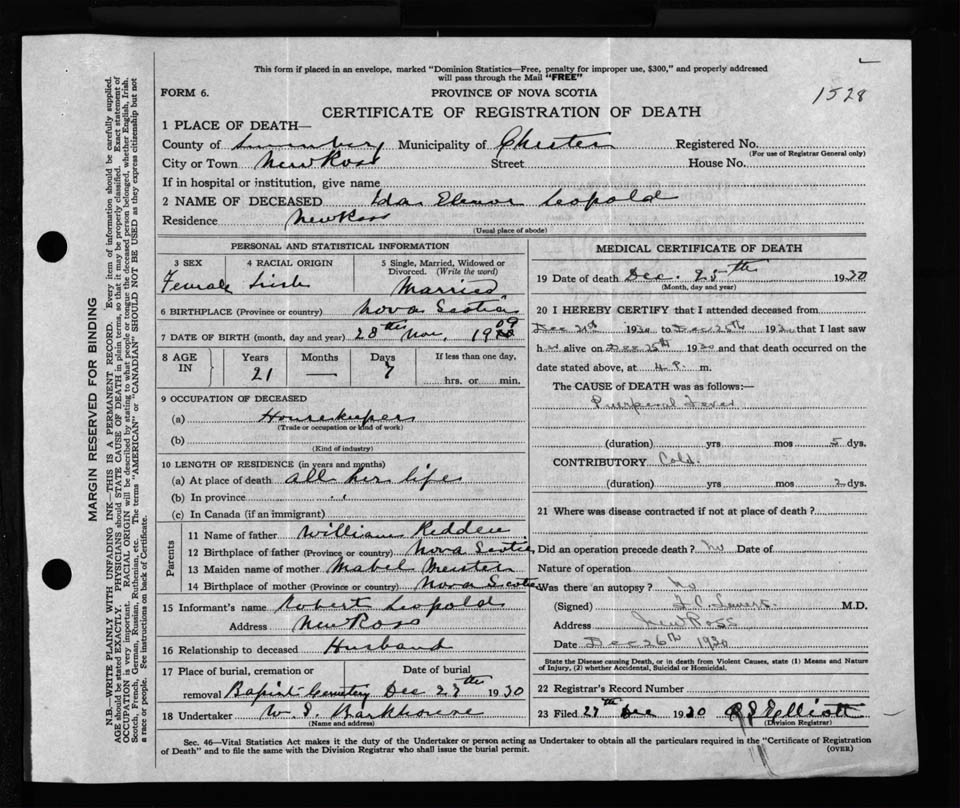 This form if placed in an envelope, marked "Dominion Statistics—Free, penalty for improper use, $300," and properly addressed
will pass through the Mail "FREE"
1528
FORM 6.
PROVINCE OF NOVA SCOTIA
CERTIFICATE OF REGISTRATION OF DEATH
1 PLACE OF DEATH—
County of Lunenburg Municipality of Chester Registered No.
(For use of Registrar General only)
City or Town New Ross Street House No.
If in hospital or institution, give name
2 NAME OF DECEASED Ida Elenor Leopold
Residence New Ross
(Usual place of abode)
PERSONAL AND STATISTICAL INFORMATION
3 SEX
Female
4 RACIAL ORIGIN
Irish
5 Single, Married, Widowed or
Divorced. (Write the word)
Married
6 BIRTHPLACE (Province or country) Nova Scotia
7 DATE OF BIRTH (month, day and year) 28th Nov, 1909
8 AGE IN
Years
21
Months
—
Days
7
If less than one day,
hrs. or min.
9 OCCUPATION OF DECEASED
(a) Housekeeper
(Trade or occupation or kind of work)
(b)
(Kind of industry)
10 LENGTH OF RESIDENCE (in years and months)
(a) At place of death all her life
(b) In province " "
(c) In Canada (if an immigrant)
Parents
11 Name of father William Redden
12 Birthplace of father (Province or country) Nova Scotia
13 Maiden name of mother Mabel Meister
14 Birthplace of mother (Province or country) Nova Scotia
15 Informant's name Robert Leopold
Address New Ross
16 Relationship to deceased Husband
17 Place of burial, cremation or Date of burial
removal Bapist Cemetery Dec 27th 1930
18 Undertaker W. S. Barkhouse
(Name and address)
MEDICAL CERTIFICATE OF DEATH
19 Date of death Dec. 25th 1930
(Month, day and year)
20 I HEREBY CERTIFY that I attended deceased from
Dec 21st 1930 to Dec 26th 1930 that I last saw
her alive on Dec 25th 1930 and that death occurred on the
date stated above, at 4 P. m.
The CAUSE OF DEATH was as follows:—
Puerperal Fever
(duration) yrs mos 5 dys.
CONTRIBUTORY Cold.
(duration) yrs. mos. 2 dys.
21 Where was disease contracted if not at place of death?
Did an operation precede death? No Date of
Nature of operation
Was there an autopsy? No
(Signed) M.D.
Address New Ross
Date Dec 26th 1930
State the Disease causing Death, or in death from Violent Causes, state (1) Means and Nature
of Injury, (2) whether Accidental, Suicidal or Homicidal.
22 Registrar's Record Number
23 Filed 27th Dec 1930 Elliott
(Division Registrar)
Sec. 46—Vital Statistics Act makes it the duty of the Undertaker or person acting as Undertaker to obtain all the particulars required in the "Certificate of Registration
of Death" and to file the same with the Division Registrar who shall issue the burial permit.
(OVER)
MARGIN RESERVED FOR BINDING
N.B.—WRITE PLAINLY WITH UNFADING INK—THIS IS A PERMANENT RECORD. Every item of information should be carefully supplied.
AGE should be stated EXACTLY. PHYSICIANS should STATE CAUSE OF DEATH in plain terms, so that it may be properly classified. Exact statement of
OCCUPATION is very important. RACIAL ORIGIN will be described by stating to what people or tongue the deceased person belonged, whether English, Irish,
Scotch, French, German, Russian, Ruthenian, etc. The terms "AMERICAN" or "CANADIAN" SHOULD NOT BE USED as they express citizenship but not
a race or people. See instructions on back of Certificate.